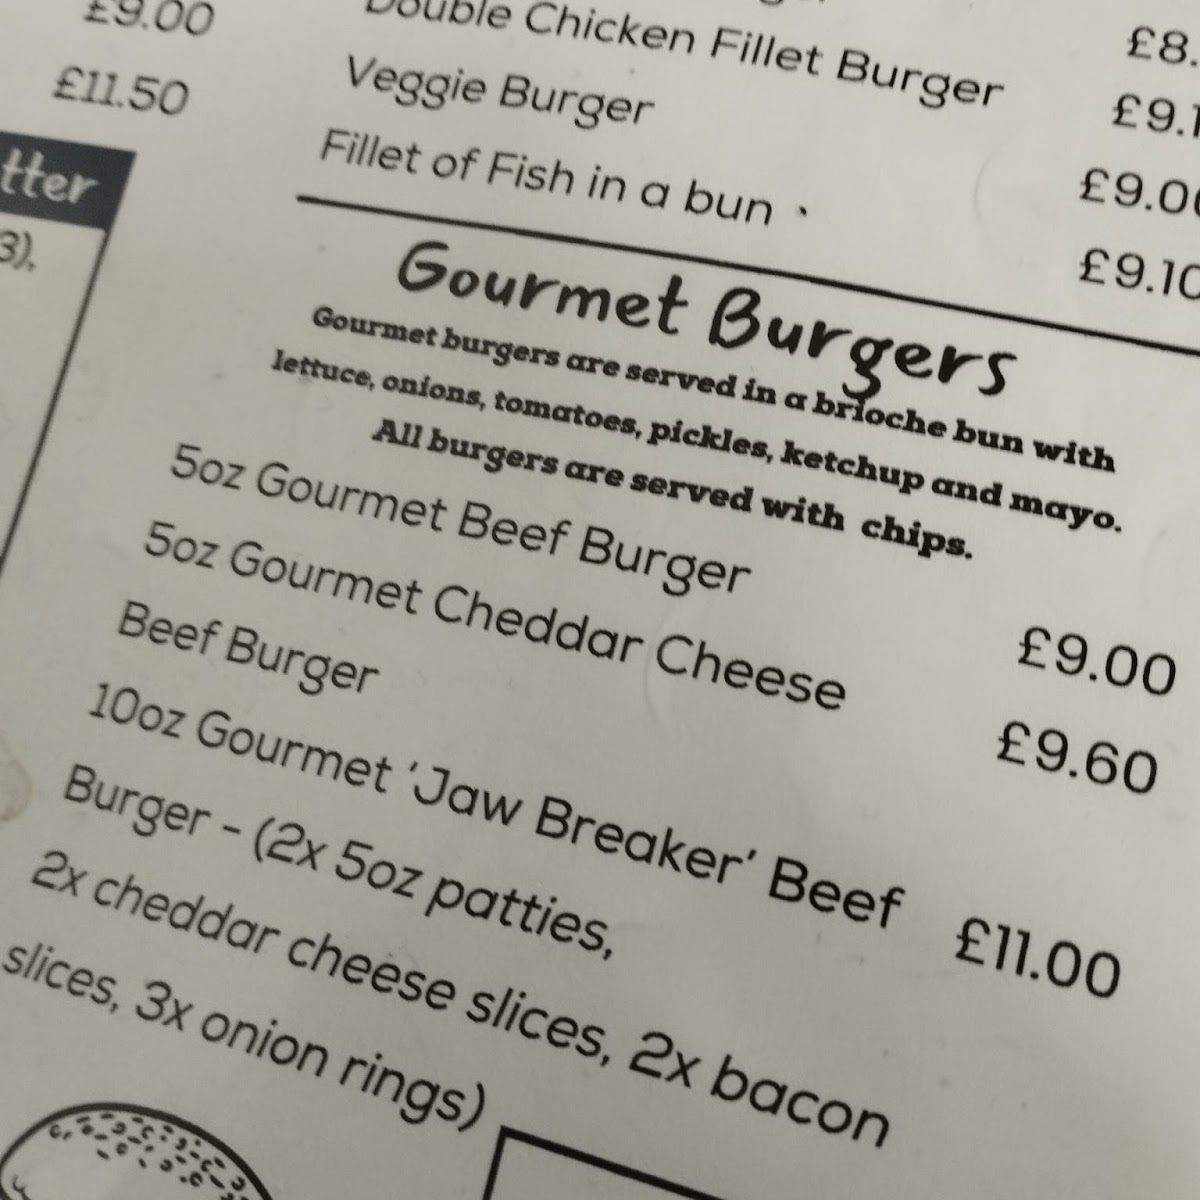 £9.00
£11.50
tter
3),
Double Chicken Fillet Burger
Veggie Burger
Fillet of Fish in a bun
£8.
£9.1
£9.00
£9.10
Gourmet Burgers
Gourmet burgers are served in a brioche bun with
lettuce, onions, tomatoes, pickles, ketchup and mayo.
All burgers are served with chips.
5oz Gourmet Beef Burger £9.00
5oz Gourmet Cheddar Cheese £9.60
Beef Burger
10oz Gourmet ‘Jaw Breaker’ Beef £11.00
Burger - (2x 5oz patties,
2x cheddar cheese slices, 2x bacon
slices, 3x onion rings)